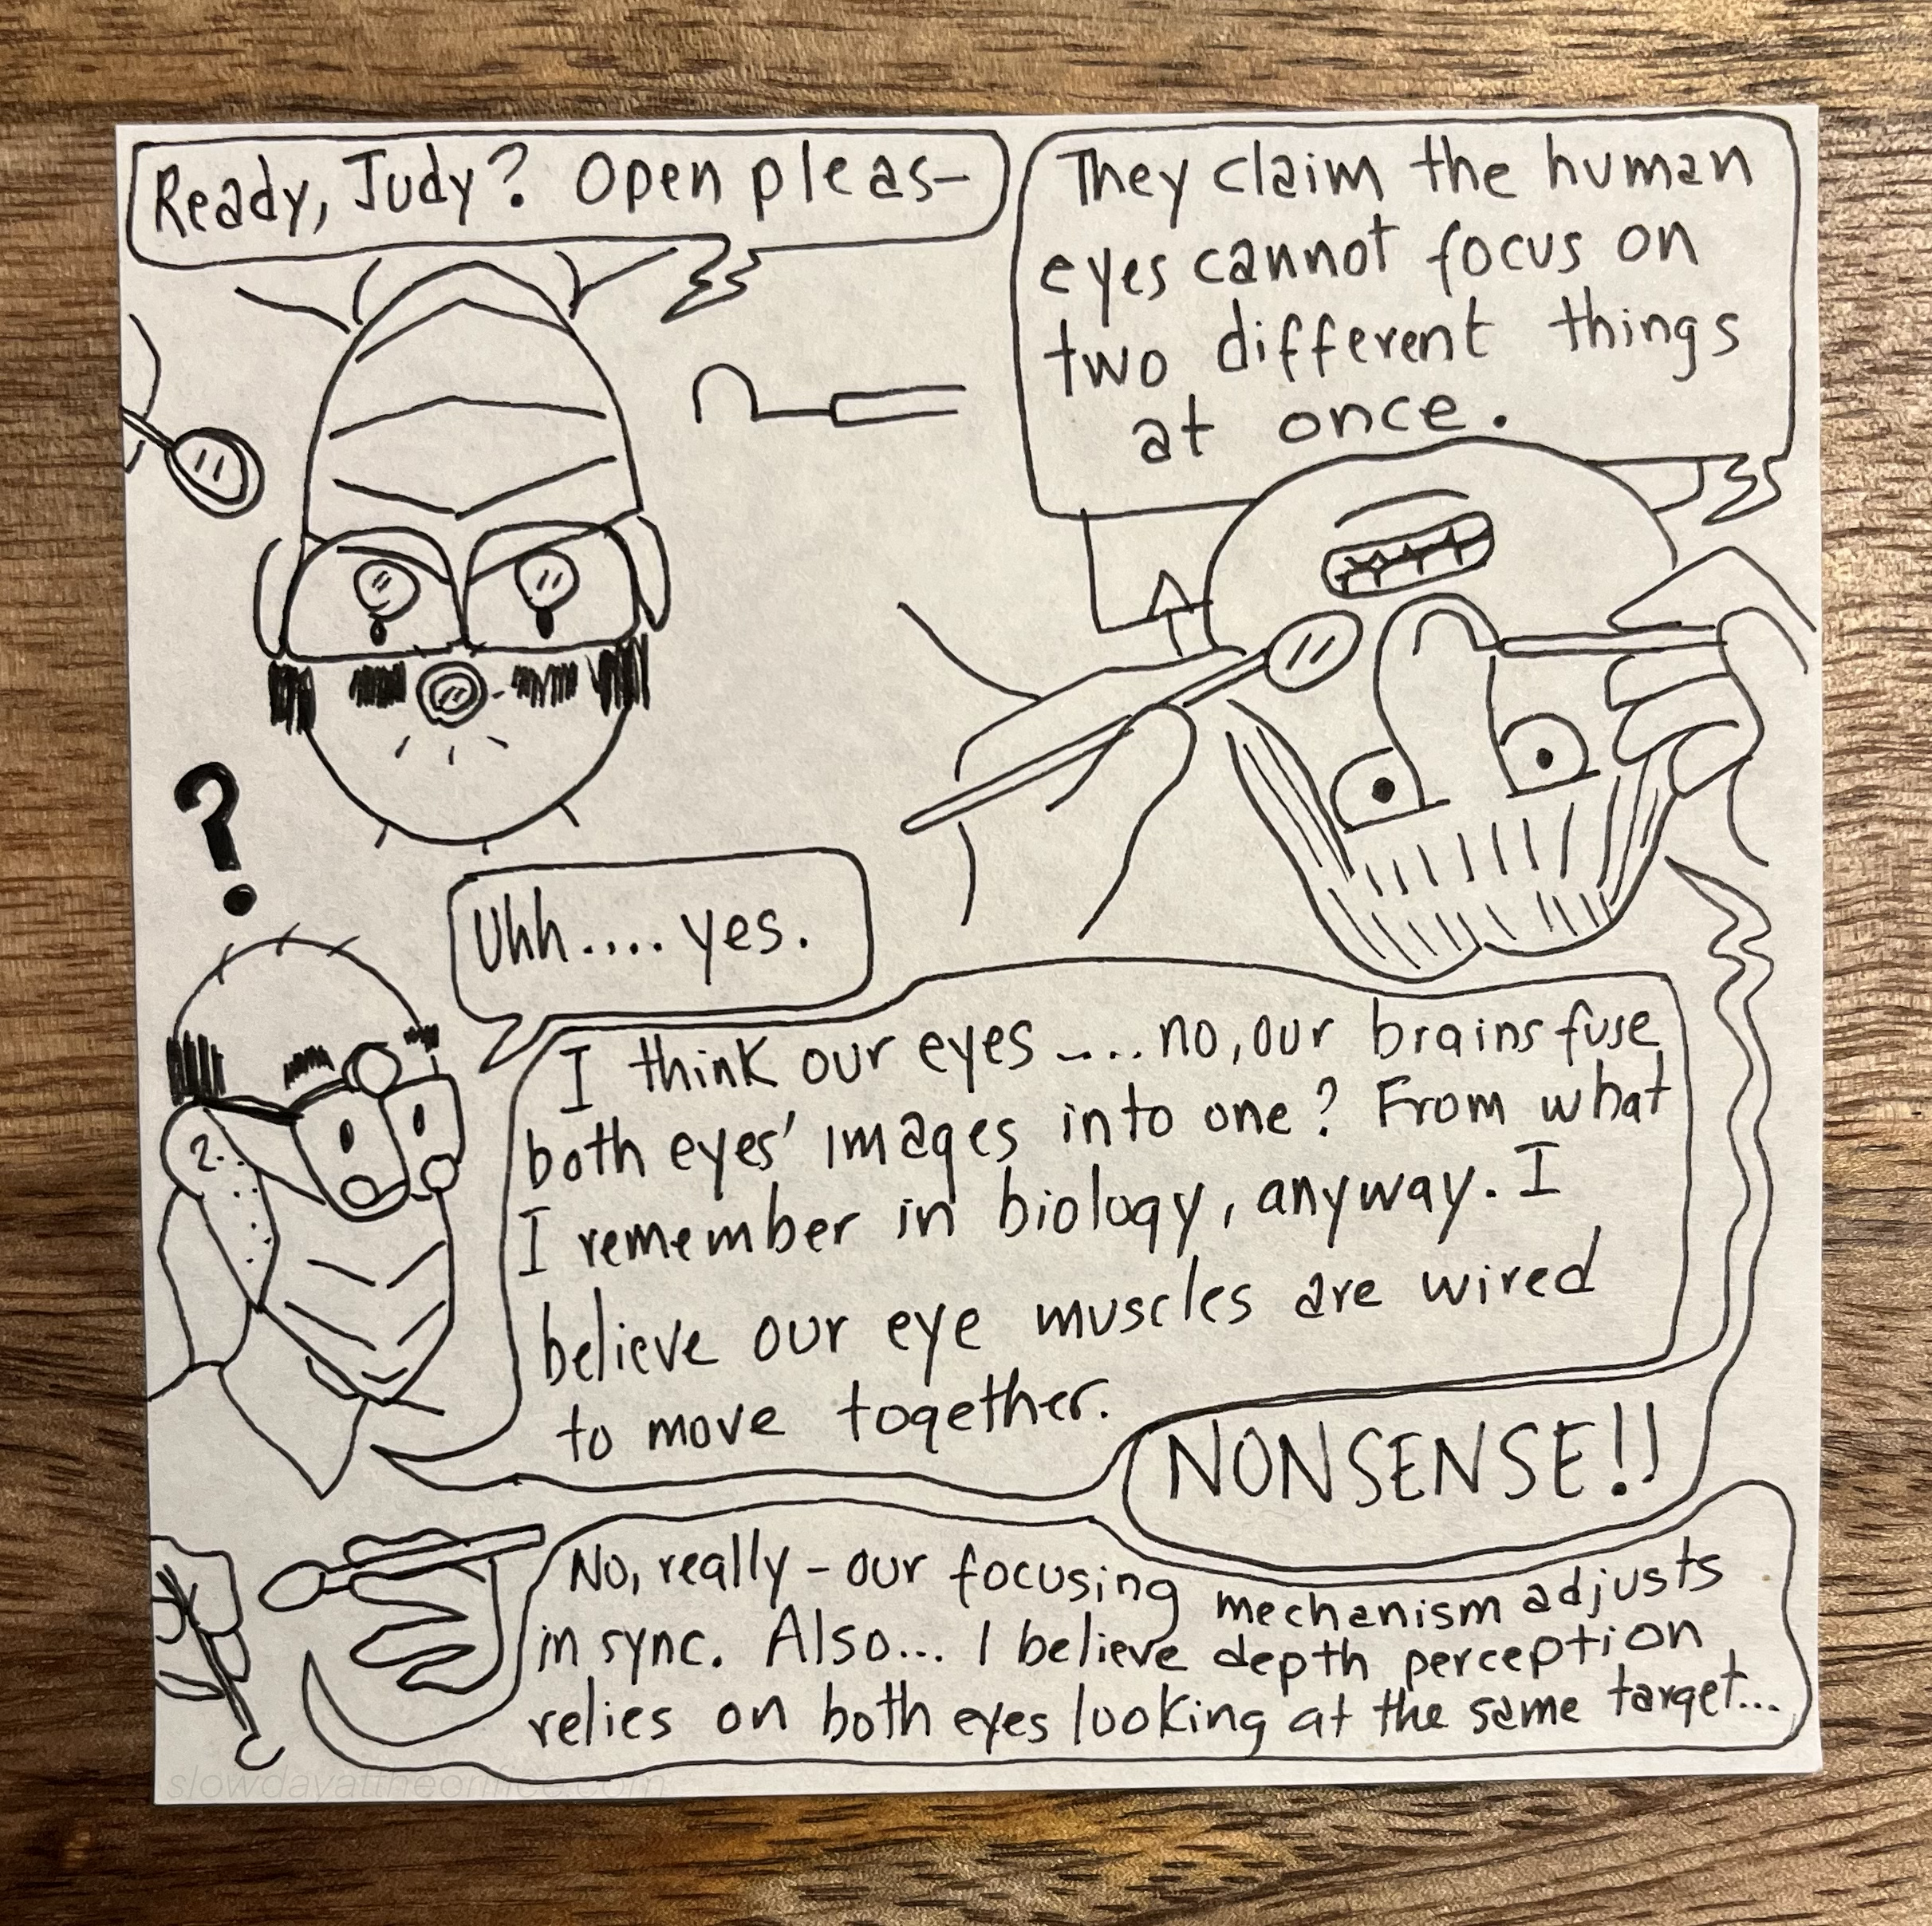 Ready, Judy? Open pleas—
They claim the human
eyes cannot focus on
two different things
at once.
?
Uhh.... yes.
I think our eyes .... no, our brains fuse
both eyes' images into one? From what
I remember in biology, anyway. I
believe our eye muscles are wired
to move together.
NONSENSE!!
No, really - our focusing mechanism adjusts
in sync. Also... I believe depth perception
relies on both eyes looking at the same target...